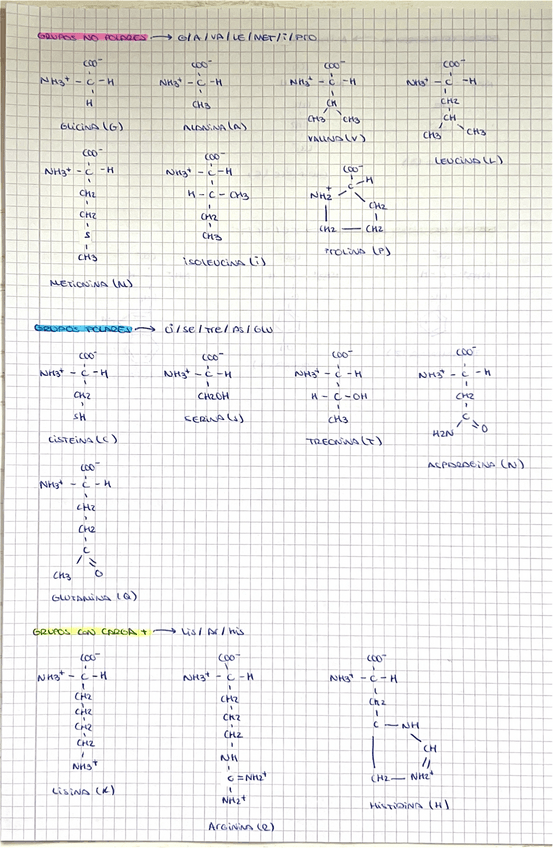 GRUPOS NO POLARES → G/A/VA/LE/MET/i/PRO
COO⁻ COO⁻ COO⁻ COO⁻
NH3⁺ - C - H NH3⁺ - C - H NH3⁺ - C - H NH3⁺ - C - H
H CH3 CH CH2
CH3 CH3 CH
CH3 CH3
GLICINA (G) ALANINA (A) VALINA (V) LEUCINA (L)
COO⁻ COO⁻ COO⁻
NH3⁺ - C - H NH3⁺ - C - H C - H
CH2 H - C - CH3 NH2⁺ CH2
CH2 CH2 CH2 — CH2
S CH3
CH3
METIONINA (M) ISOLEUCINA (i) PROLINA (P)
GRUPOS POLARES → Ci/SE/TRE/AS/GLU
COO⁻ COO⁻ COO⁻ COO⁻
NH3⁺ - C - H NH3⁺ - C - H NH3⁺ - C - H NH3⁺ - C - H
CH2 CH2OH H - C - OH CH2
SH CH3 C
H2N O
CISTEÍNA (C) SERINA (S) TREONINA (T) ASPARAGINA (N)
COO⁻
NH3⁺ - C - H
CH2
CH2
C
CH3 O
GLUTAMINA (Q)
GRUPOS CON CARGA + → Lis/AR/His
COO⁻ COO⁻ COO⁻
NH3⁺ - C - H NH3⁺ - C - H NH3⁺ - C - H
CH2 CH2 CH2
CH2 CH2 C — NH
CH2 CH2 CH
CH2 NH CH2 — NH2⁺
NH3⁺ C = NH2⁺
NH2⁺
LISINA (K) ARGININA (R) HISTIDINA (H)